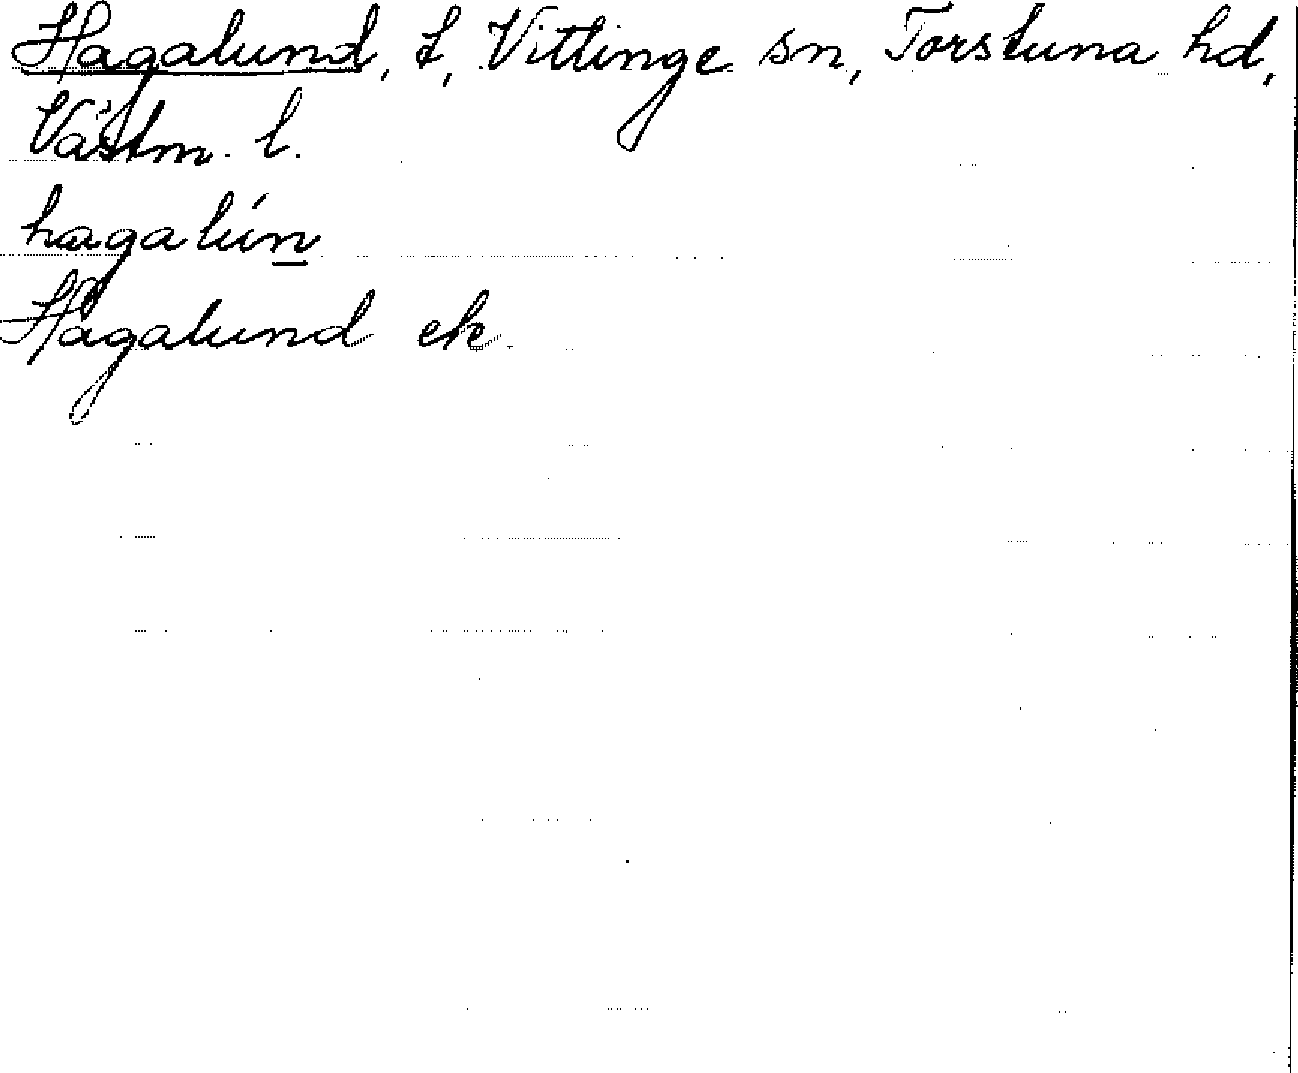 Hagalund, t, Vittinge sn, Torstuna hd,
Västm. l.
hagalún
Hagalund ek.